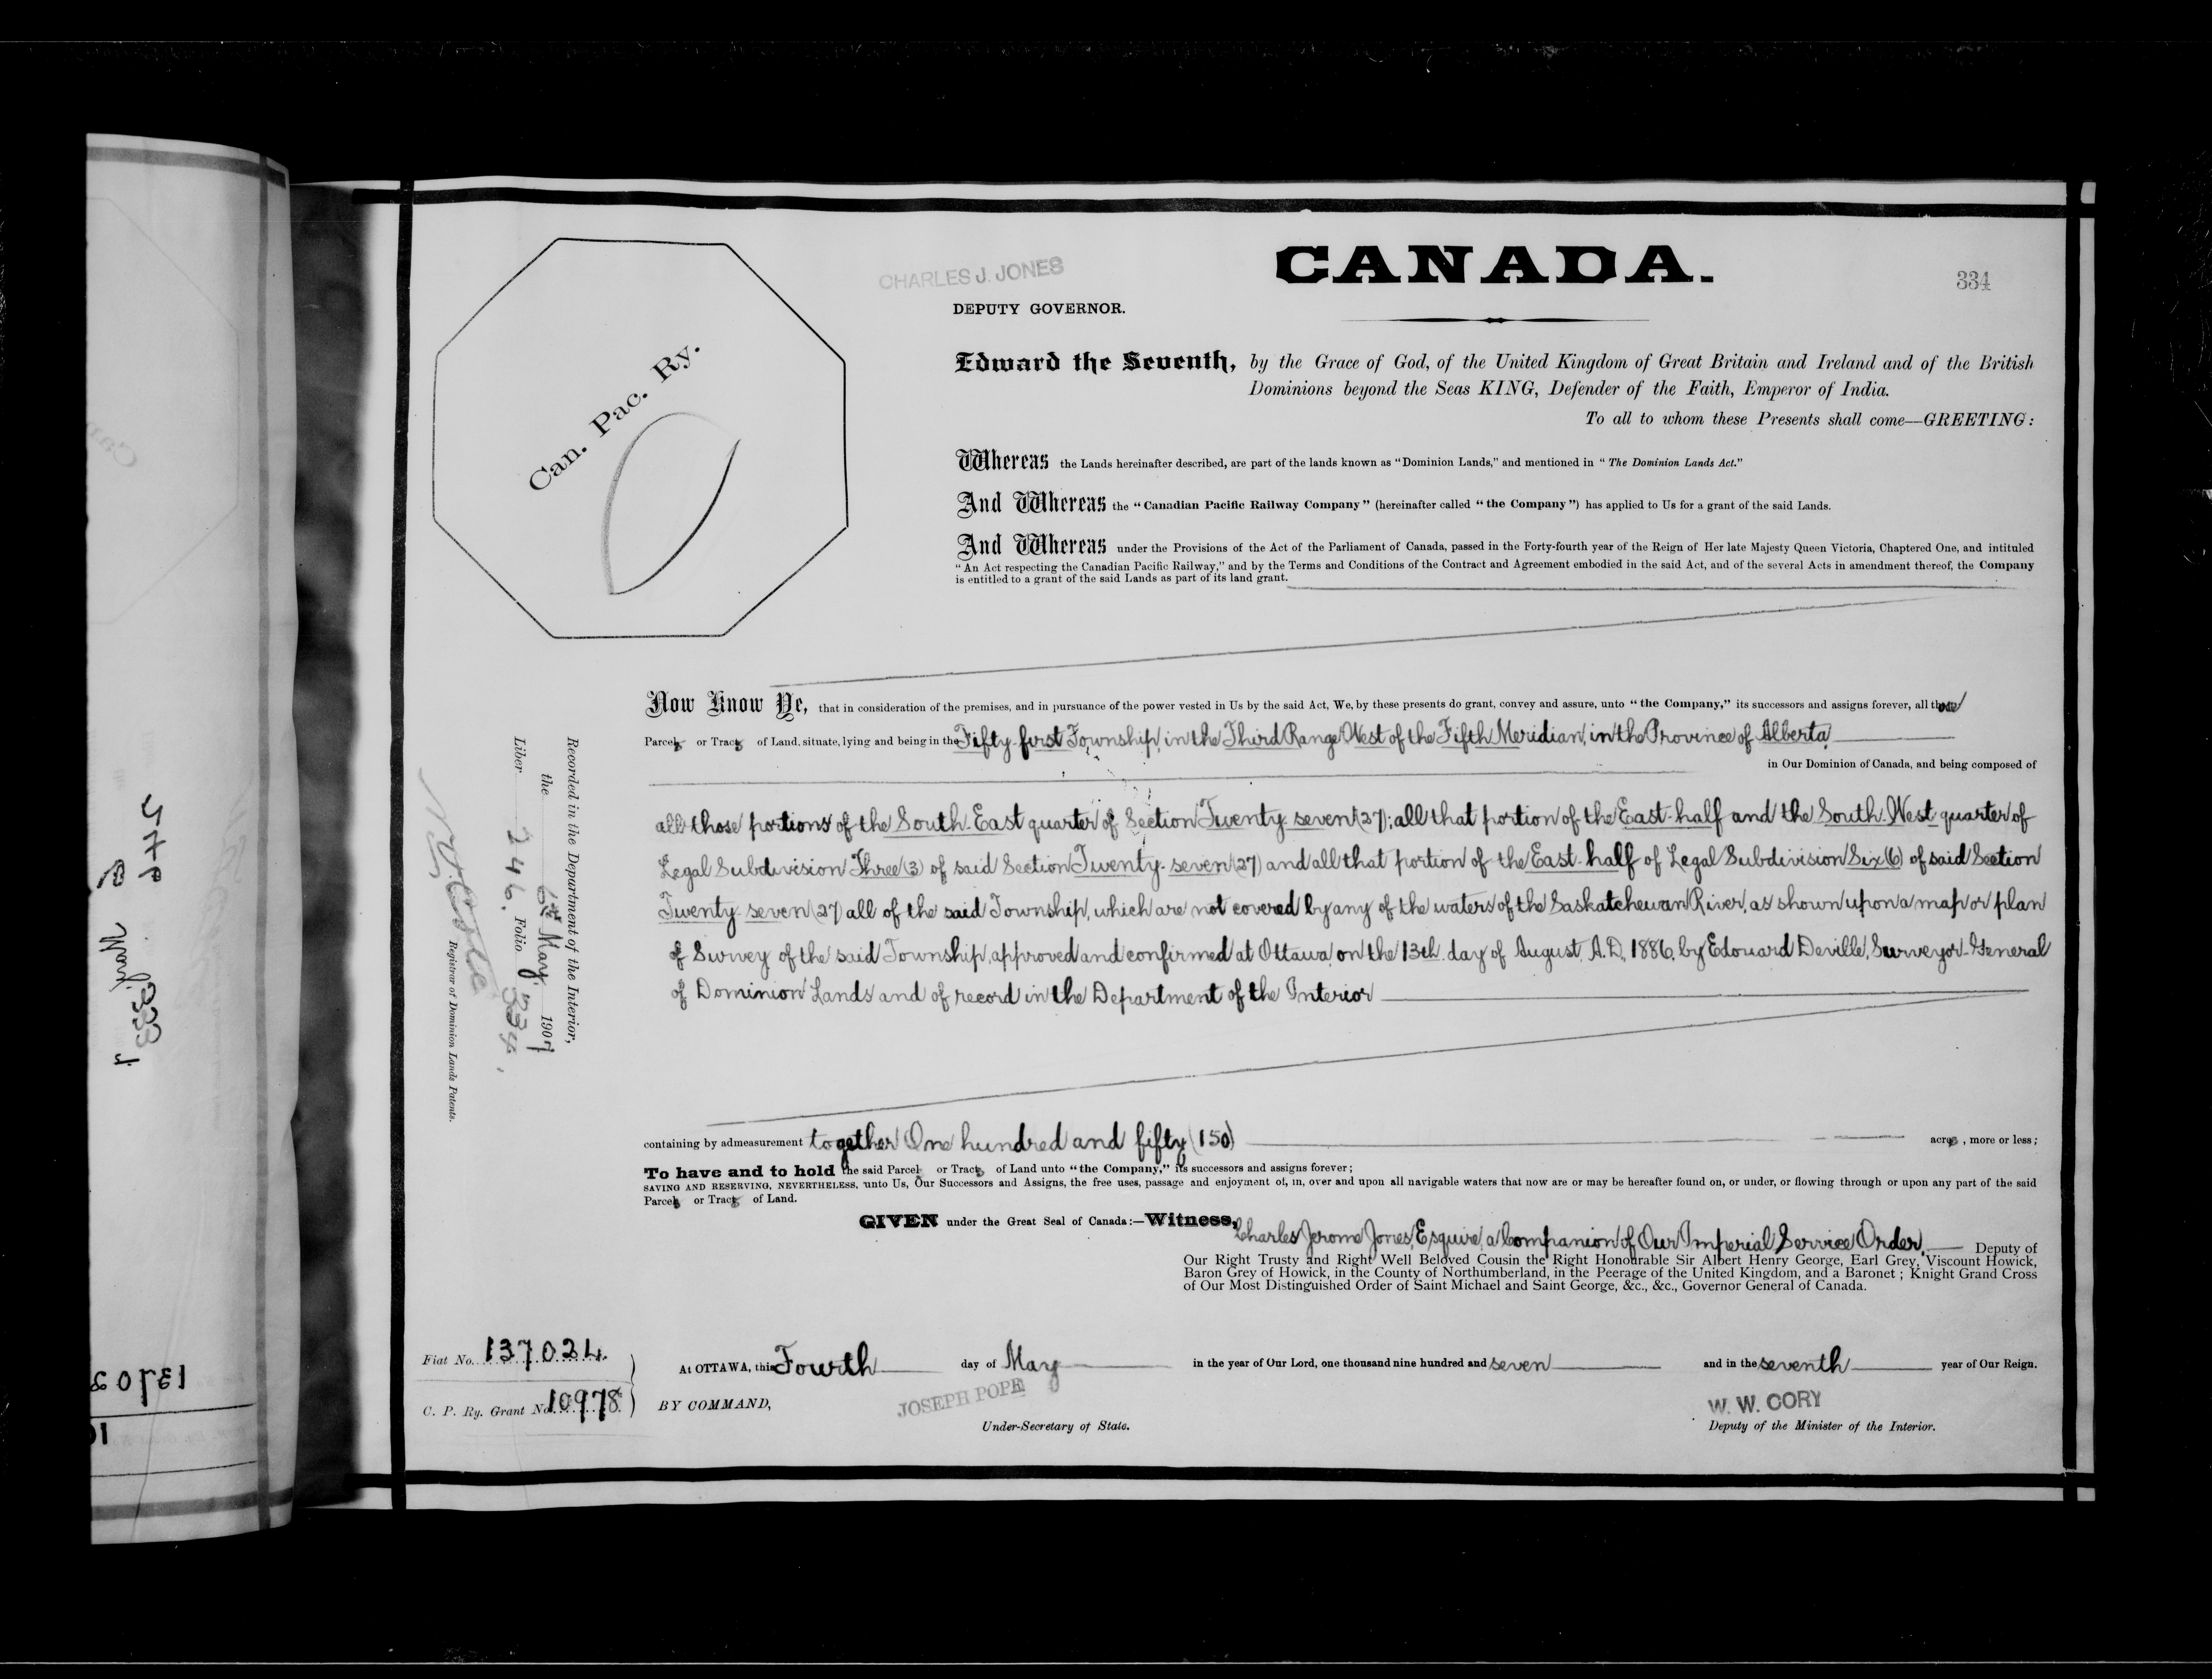 CANADA.
CHARLES J. JONES
334
DEPUTY GOVERNOR.
Can. Pac. Ry.
Edward the Seventh, by the Grace of God, of the United Kingdom of Great Britain and Ireland and of the British
Dominions beyond the Seas KING, Defender of the Faith, Emperor of India.
To all to whom these Presents shall come—GREETING:
Whereas the Lands hereinafter described, are part of the lands known as "Dominion Lands," and mentioned in "The Dominion Lands Act."
And Whereas the "Canadian Pacific Railway Company" (hereinafter called "the Company") has applied to Us for a grant of the said Lands.
And Whereas under the Provisions of the Act of the Parliament of Canada, passed in the Forty-fourth year of the Reign of Her late Majesty Queen Victoria, Chaptered One, and intituled
"An Act respecting the Canadian Pacific Railway," and by the Terms and Conditions of the Contract and Agreement embodied in the said Act, and of the several Acts in amendment thereof, the Company
is entitled to a grant of the said Lands as part of its land grant.
Now Know Ye, that in consideration of the premises, and in pursuance of the power vested in Us by the said Act, We, by these presents do grant, convey and assure, unto "the Company," its successors and assigns forever, all those
Parcels or Tracts of Land, situate, lying and being in the Fifty-first Township, in the Third Range West of the Fifth Meridian, in the Province of Alberta,
in Our Dominion of Canada, and being composed of
all those portions of the South-East quarter of Section Twenty-seven (27); all that portion of the East-half and the South-West quarter of
Legal Subdivision Three (3) of said Section Twenty-seven (27) and all that portion of the East-half of Legal Subdivision Six (6) of said Section
Twenty-seven (27) all of the said Township, which are not covered by any of the waters of the Saskatchewan River, as shown upon a map or plan
of Survey of the said Township, approved and confirmed at Ottawa, on the 13th. day of August, A.D. 1886, by Edouard Deville, Surveyor-General
of Dominion Lands and of record in the Department of the Interior
containing by admeasurement together One hundred and fifty (150) acres, more or less;
To have and to hold the said Parcels or Tracts of Land unto "the Company," its successors and assigns forever;
SAVING AND RESERVING, NEVERTHELESS, unto Us, Our Successors and Assigns, the free uses, passage and enjoyment of, in, over and upon all navigable waters that now are or may be hereafter found on, or under, or flowing through or upon any part of the said
Parcels or Tracts of Land.
GIVEN under the Great Seal of Canada:—Witness, Charles Jerome Jones, Esquire, a Companion of Our Imperial Service Order, Deputy of
Our Right Trusty and Right Well Beloved Cousin the Right Honourable Sir Albert Henry George, Earl Grey, Viscount Howick,
Baron Grey of Howick, in the County of Northumberland, in the Peerage of the United Kingdom, and a Baronet; Knight Grand Cross
of Our Most Distinguished Order of Saint Michael and Saint George, &c., &c., Governor General of Canada.
At OTTAWA, this Fourth day of May in the year of Our Lord, one thousand nine hundred and seven and in the seventh year of Our Reign.
BY COMMAND,
JOSEPH POPE
Under-Secretary of State.
W. W. CORY
Deputy of the Minister of the Interior.
Fiat No. 137024.
C. P. Ry. Grant No. 10978
Recorded in the Department of the Interior,
the 6th May, 1907
Liber 246. Folio 334.
Registrar of Dominion Lands Patents.
333